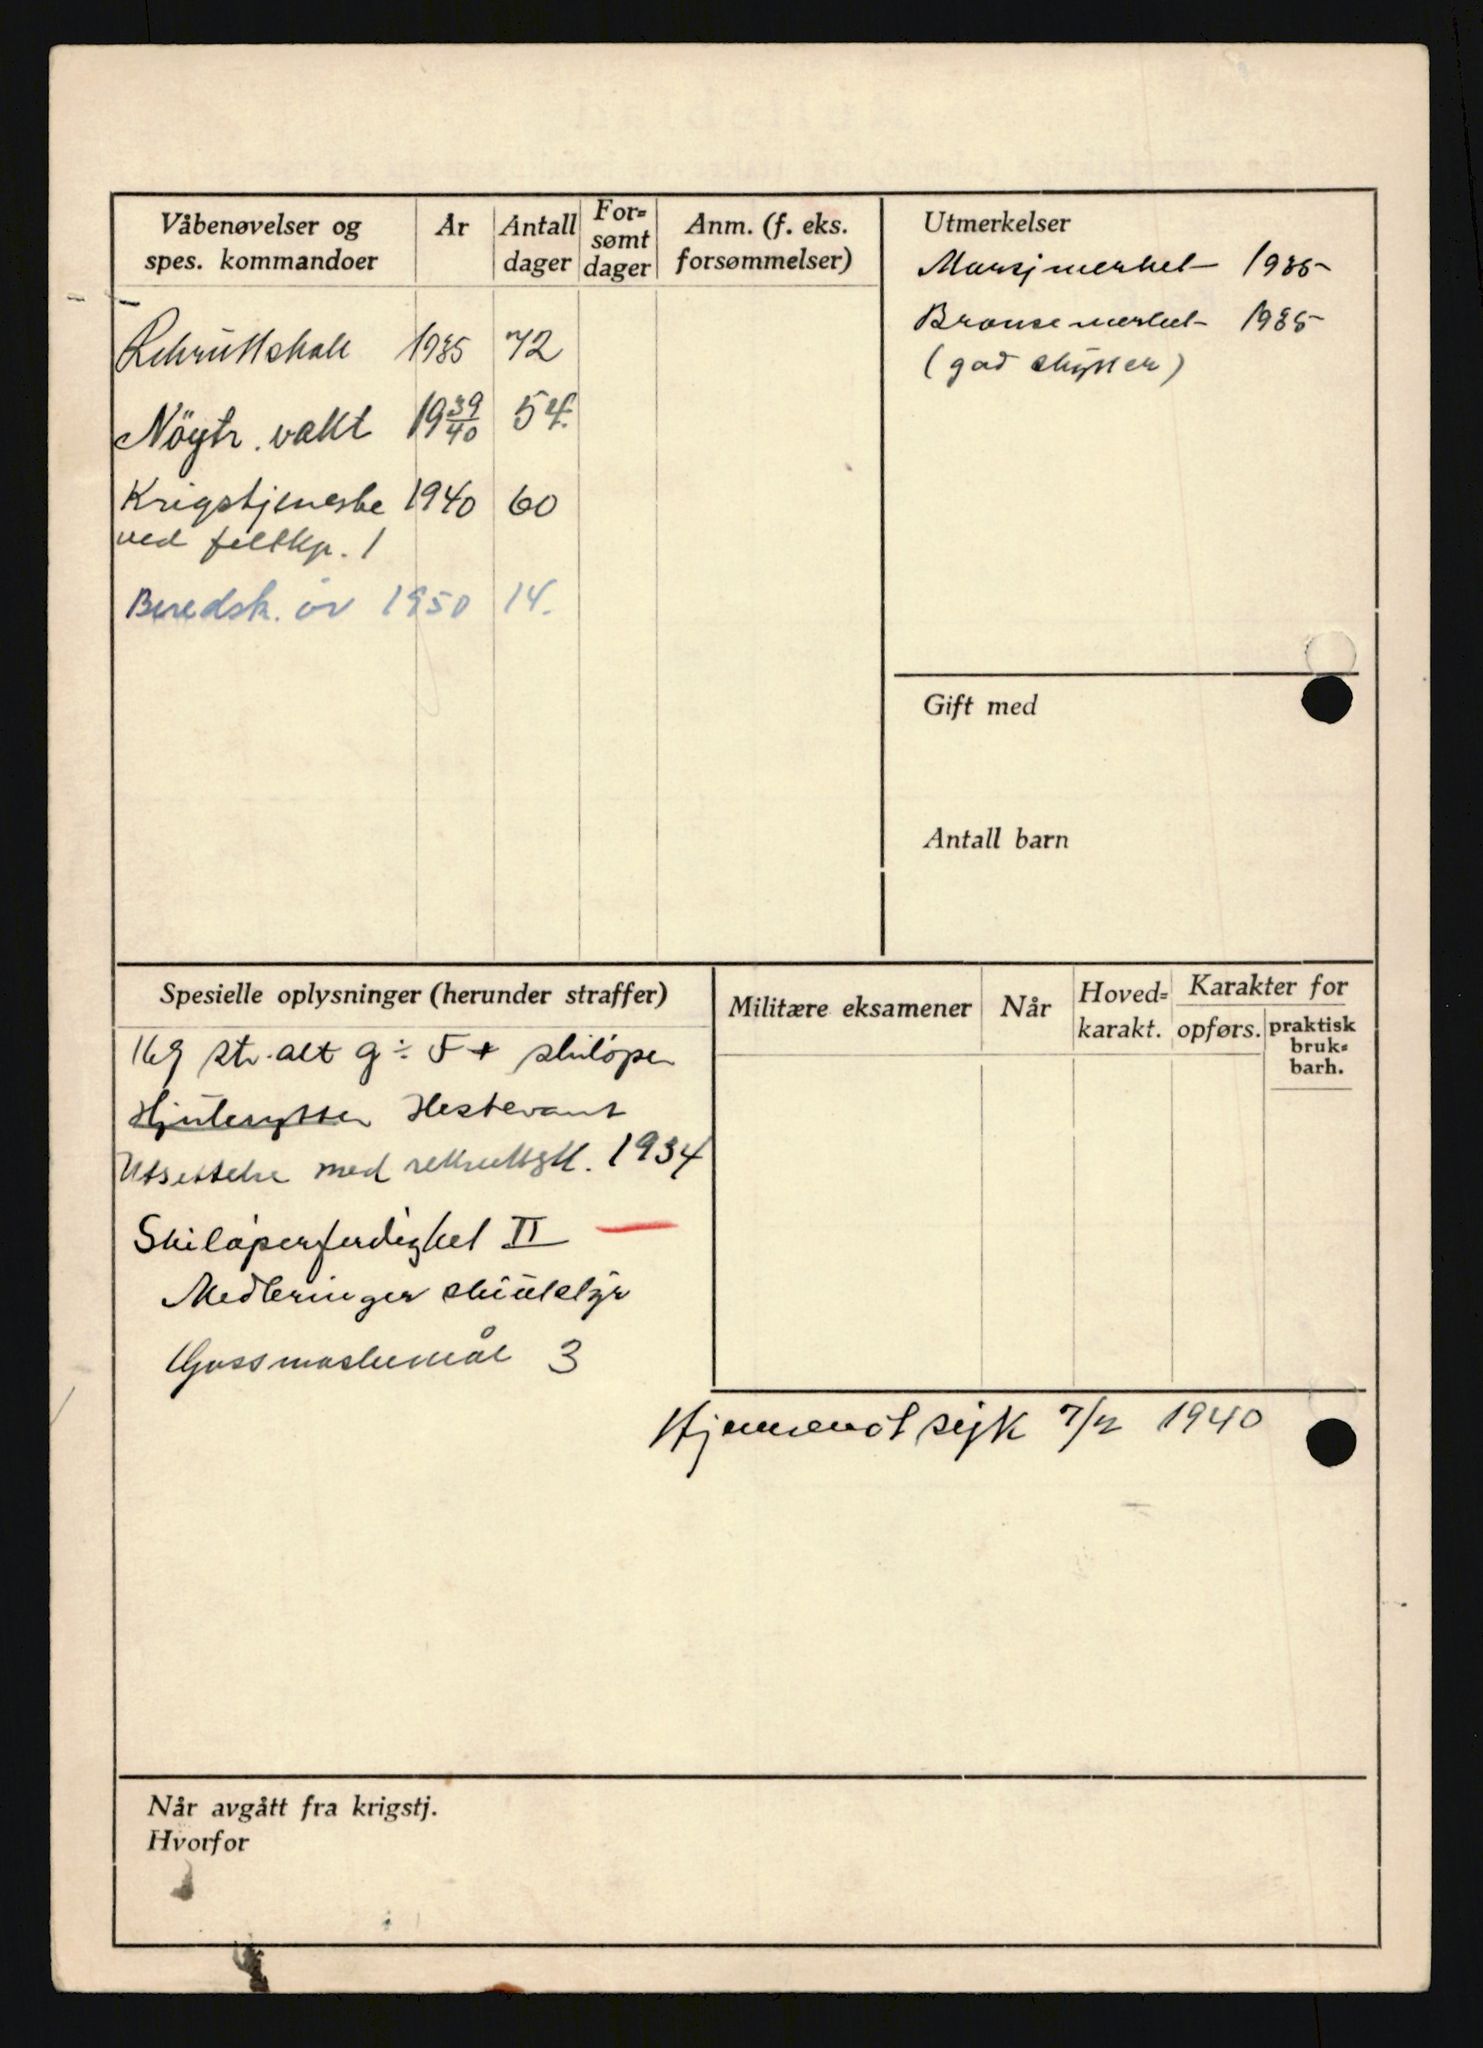 Våbenøvelser og
spes. kommandoer
Ar
Antall
dager
For-
sømt
dager
Anm. (f. eks.
forsømmelser)
Rekruttskole 1935 72
Nöytr. vakt 19 39/40 54.
Krigstjeneste 1940 60
ved feltkp. 1
Beredsk. öv 1950 14.
Utmerkelser
Marsjmerket 1935
Bronsemerket 1935
(god skytter)
Gift med
Antall barn
Spesielle oplysninger (herunder straffer)
169 str. alt g ÷ F + skilöper
Hjulrytter Hestevant
Utsettelse med rekruttsk. 1934
Skilöperferdighet II
Medbringer skiutstyr
Gassmaskemål 3
Militære eksamener
Når
Hoved-
karakt.
Karakter for
opførs.
praktisk
bruk-
barh.
Hjemsendt syk 1940
Når avgått fra krigstj.
Hvorfor